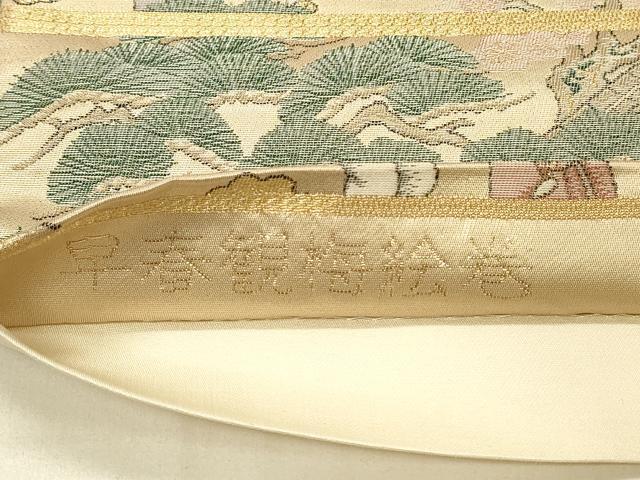 早春観梅絵巻